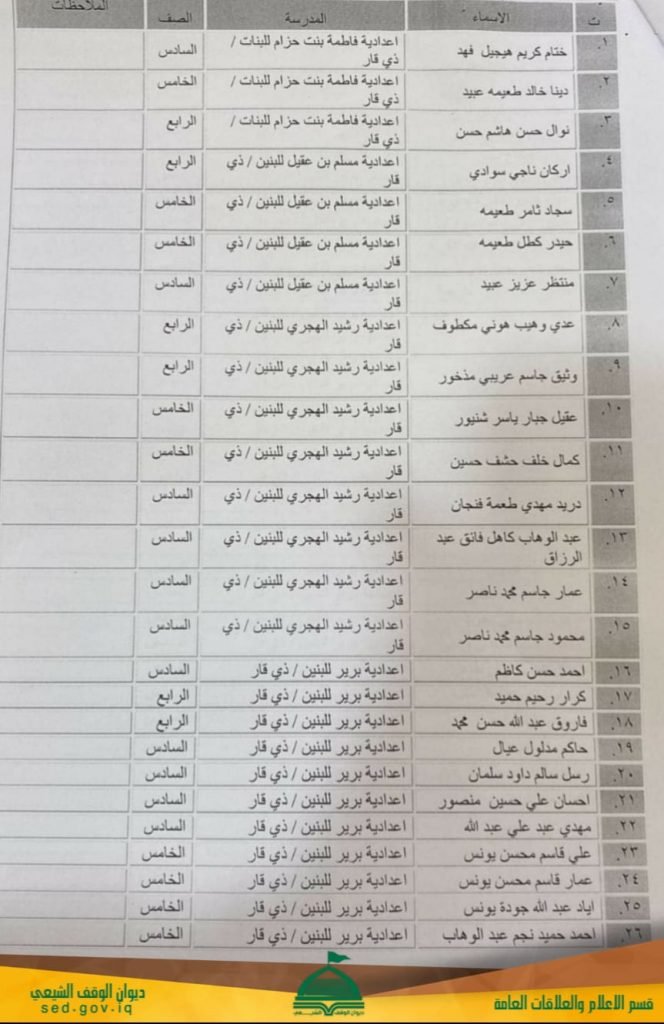 ت الاسماء المدرسة الصف الملاحظات
١. ختام كريم هيجيل فهد اعدادية فاطمة بنت حزام للبنات / ذي قار السادس
٢. دينا خالد طعيمه عبيد اعدادية فاطمة بنت حزام للبنات / ذي قار الخامس
٣. نوال حسن هاشم حسن اعدادية فاطمة بنت حزام للبنات / ذي قار الرابع
٤. اركان ناجي سوادي اعدادية مسلم بن عقيل للبنين / ذي قار الرابع
٥. سجاد ثامر طعيمه اعدادية مسلم بن عقيل للبنين / ذي قار الخامس
٦. حيدر كطل طعيمه اعدادية مسلم بن عقيل للبنين / ذي قار الخامس
٧. منتظر عزيز عبيد اعدادية مسلم بن عقيل للبنين / ذي قار السادس
٨. عدي وهيب هوني مكطوف اعدادية رشيد الهجري للبنين / ذي قار الرابع
٩. وثيق جاسم عريبي مذخور اعدادية رشيد الهجري للبنين / ذي قار الرابع
١٠. عقيل جبار ياسر شنيور اعدادية رشيد الهجري للبنين / ذي قار الخامس
١١. كمال خلف حشف حسين اعدادية رشيد الهجري للبنين / ذي قار الخامس
١٢. دريد مهدي طعمة فنجان اعدادية رشيد الهجري للبنين / ذي قار السادس
١٣. عبد الوهاب كاهل فائق عبد الرزاق اعدادية رشيد الهجري للبنين / ذي قار السادس
١٤. عمار جاسم محمد ناصر اعدادية رشيد الهجري للبنين / ذي قار السادس
١٥. محمود جاسم محمد ناصر اعدادية رشيد الهجري للبنين / ذي قار السادس
١٦. احمد حسن كاظم اعدادية برير للبنين / ذي قار السادس
١٧. كرار رحيم حميد اعدادية برير للبنين / ذي قار الرابع
١٨. فاروق عبد الله حسن محمد اعدادية برير للبنين / ذي قار الرابع
١٩. حاكم مدلول عيال اعدادية برير للبنين / ذي قار السادس
٢٠. رسل سالم داود سلمان اعدادية برير للبنين / ذي قار السادس
٢١. احسان علي حسين منصور اعدادية برير للبنين / ذي قار السادس
٢٢. مهدي عبد علي عبد الله اعدادية برير للبنين / ذي قار السادس
٢٣. علي قاسم محسن يونس اعدادية برير للبنين / ذي قار الخامس
٢٤. عمار قاسم محسن يونس اعدادية برير للبنين / ذي قار الخامس
٢٥. اياد عبد الله جودة يونس اعدادية برير للبنين / ذي قار الخامس
٢٦. احمد حميد نجم عبد الوهاب اعدادية برير للبنين / ذي قار الخامس
قسم الاعلام والعلاقات العامة
ديوان الوقف الشيعي
ديوان الوقف الشيعي
sed.gov.iq